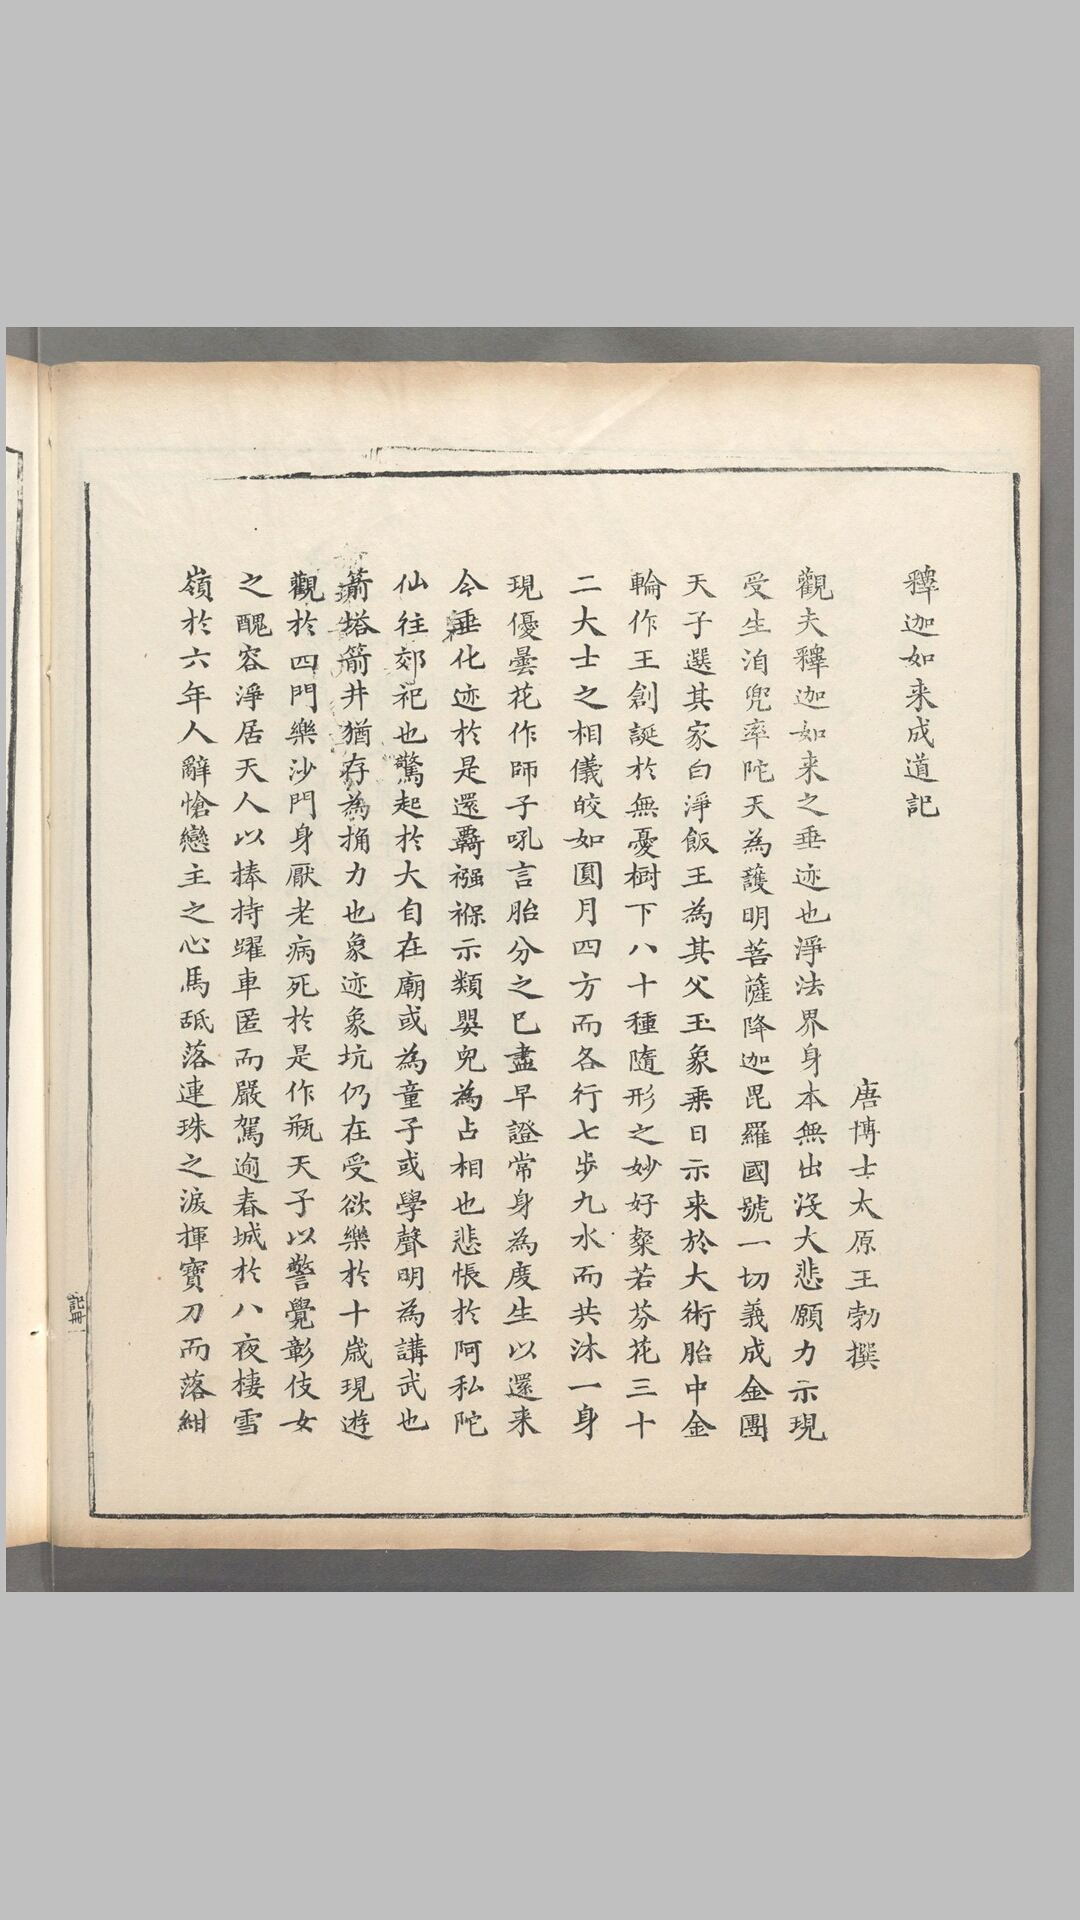 釋迦如来成道記
唐博士太原王勃撰
觀夫釋迦如来之垂迹也淨法界身本無出沒大悲願力示現
受生洎兜率陀天為護明菩薩降迦毘羅國號一切義成金團
天子選其家白淨飯王為其父玉象乘日示来於大術胎中金
輪作王創誕於無憂樹下八十種隨形之妙好粲若芬花三十
二大士之相儀皎如圓月四方而各行七步九水而共沐一身
現優曇花作師子吼言胎分之已盡早證常身為度生以還来
今垂化迹於是還羇襁褓示類嬰兒為占相也悲悵於阿私陀
仙往郊祀也驚起於大自在廟或為童子或學聲明為講武也
箭塔箭井猶存為捔力也象迹象坑仍在受欲樂於十歳現遊
觀於四門樂沙門身厭老病死於是作瓶天子以警覺彰伎女
之醜容淨居天人以捧持躍車匿而嚴駕逾春城於八夜棲雪
嶺於六年人辭愴戀主之心馬舐落連珠之淚揮寶刀而落紺